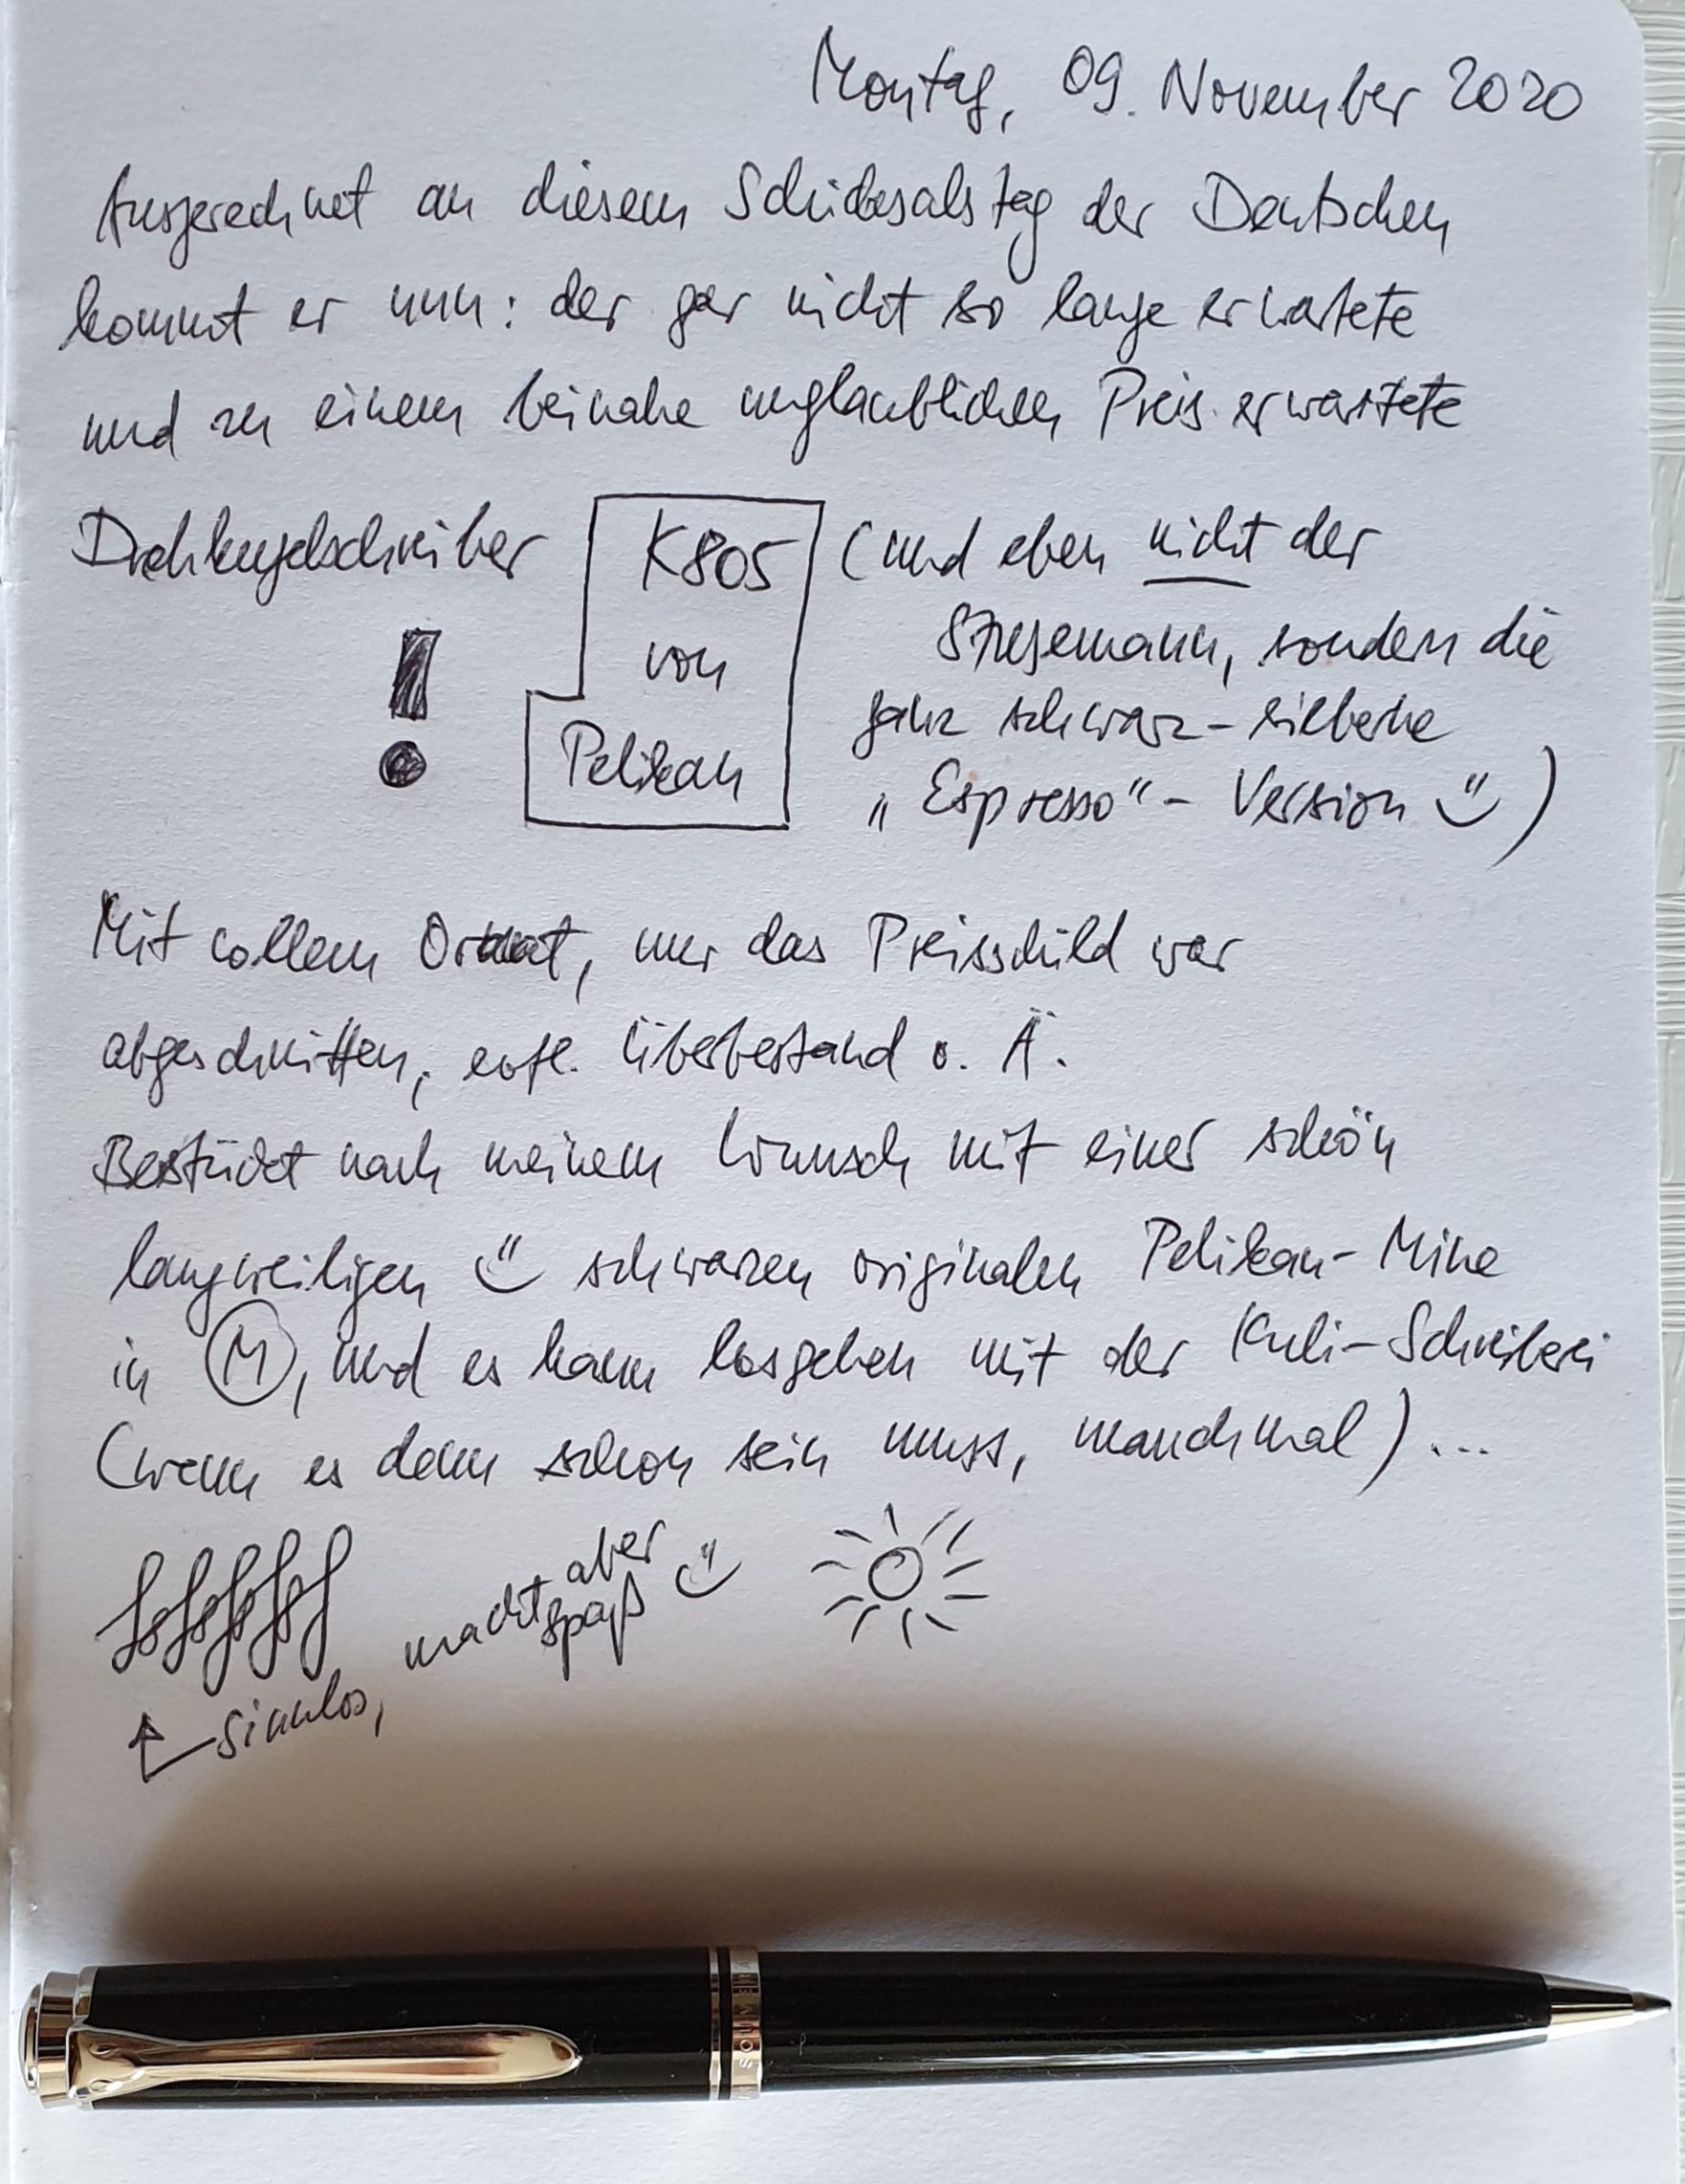 Montag, 09. November 2020
Ausgerechnet an diesem Schicksalstag der Deutschen
kommt er nun: der gar nicht so lange erwartete
und zu einem beinahe unglaublichen Preis erwartete
Drehkugelschreiber
!
K805
von
Pelikan
(und eben nicht der
Stresemann, sondern die
ganz schwarz-silberne
„Espresso“-Version)
Mit vollem Ornat, nur das Preisschild war
abgeschnitten, evtl. Überbestand o. Ä.
Bestückt nach meinem Wunsch mit einer schön
langweiligen schwarzen originalen Pelikan-Mine
in M, und es kann losgehen mit der Kuli-Schreiberei
(wenn es denn schon sein muss, manchmal)...
sinnlos, macht aber Spaß
SOUVERÄ